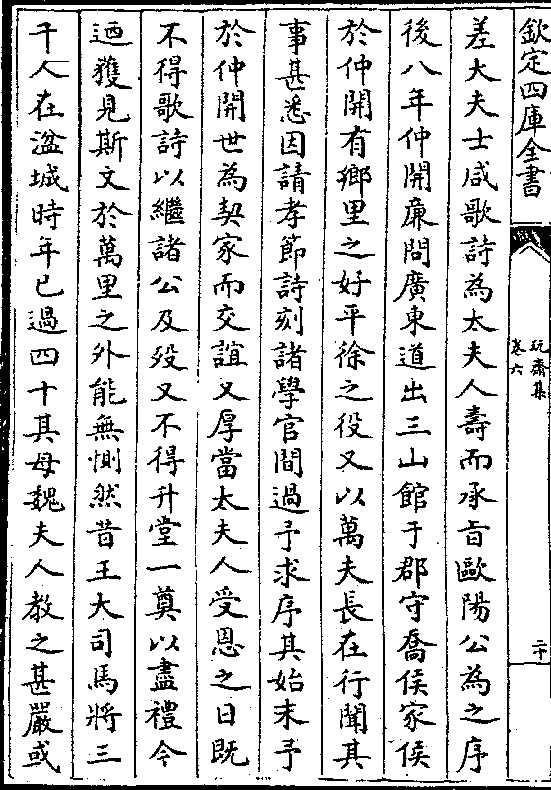 欽定四庫全書
玩齋集
卷六
二十
差大夫士咸歌詩為太夫人壽而承旨歐陽公為之序
後八年仲開亷問廣東道出三山館于郡守喬侯家侯
於仲開有鄉里之好平徐之役又以萬夫長在行聞其
事甚悉因請孝節詩刻諸學官間過予求序其始末予
於仲開世為契家而交誼又厚當太夫人受恩之日既
不得歌詩以繼諸公及歿又不得升堂一奠以盡禮今
迺獲見斯文於萬里之外能無惻然昔王大司馬將三
千人在湓城時年已過四十其母魏夫人教之甚嚴或